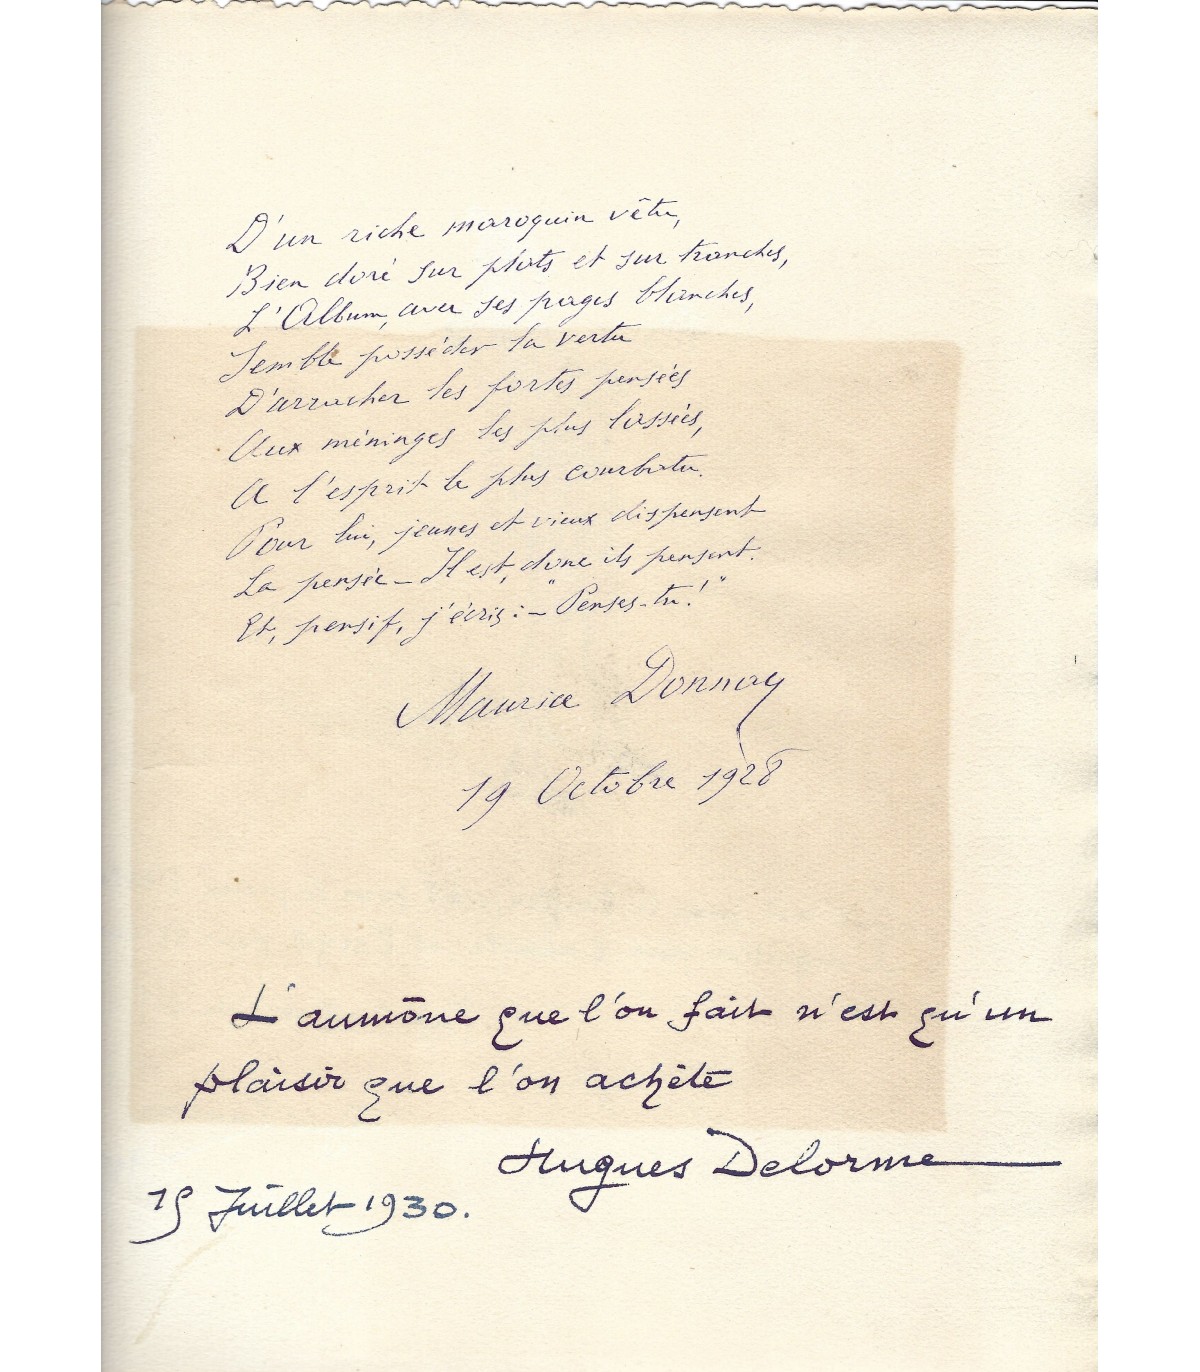 D'un riche maroquin vêtu,
Bien doré sur plats et sur tranches,
L'Album, avec ses pages blanches,
Semble posséder la vertu
D'arracher les fortes pensées
Aux méninges les plus lassées,
A l'esprit le plus courbatu.
Pour lui, jeunes et vieux dispensent
La pensée – Il est, donc ils pensent.
Et, pensif, j'écris : – "Penses-tu!"
Maurice Donnay
19 Octobre 1928
L'aumône que l'on fait n'est qu'un
plaisir que l'on achète
Hugues Delorme
15 Juillet 1930.